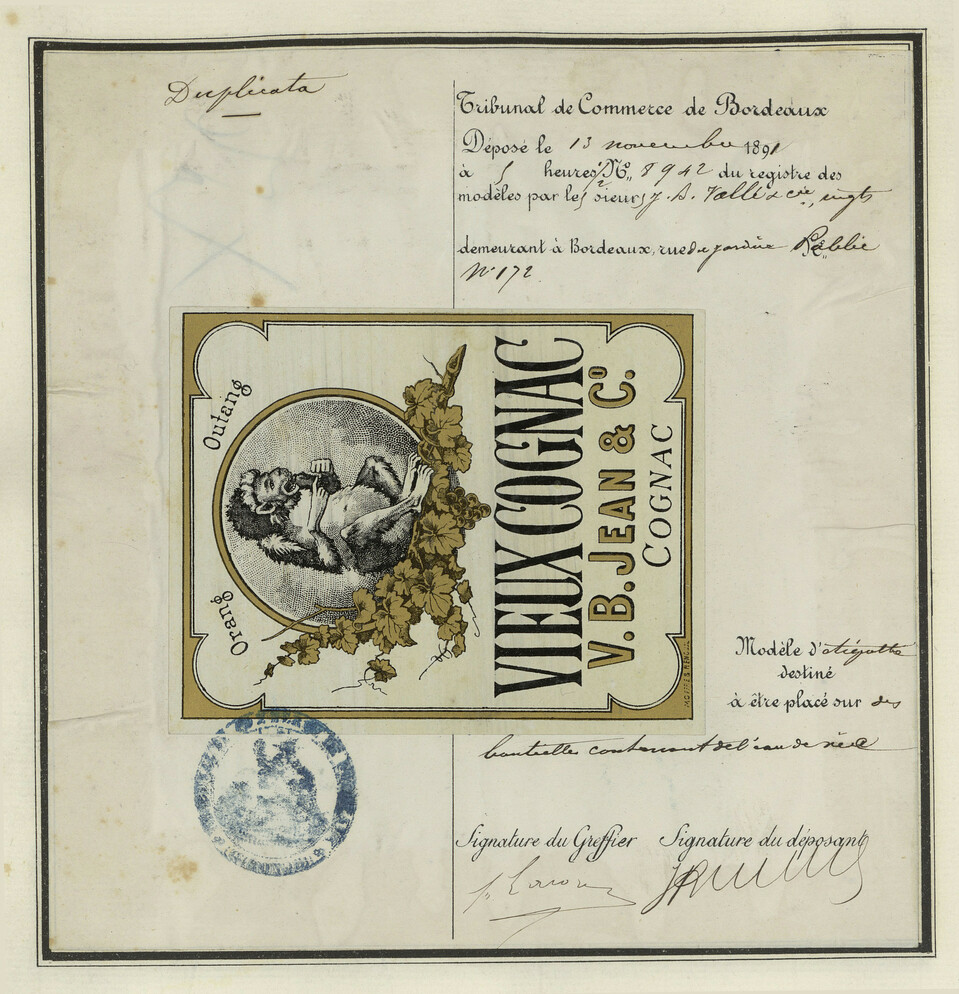 Duplicata
Tribunal de Commerce de Bordeaux
Déposé le 13 novembre 1891
à 5 heures ½ N° 8942 du registre des
modèles par les sieurs J. A. Vallé & cie,
demeurant à Bordeaux, rue du jardin Public
N° 172
Orang Outang
VIEUX COGNAC
V. B. JEAN & Cº.
COGNAC
Modèle d'étiquette
destiné
à être placé sur des
bouteilles contenant de l'eau de vie
Signature du Greffier Signature du déposant